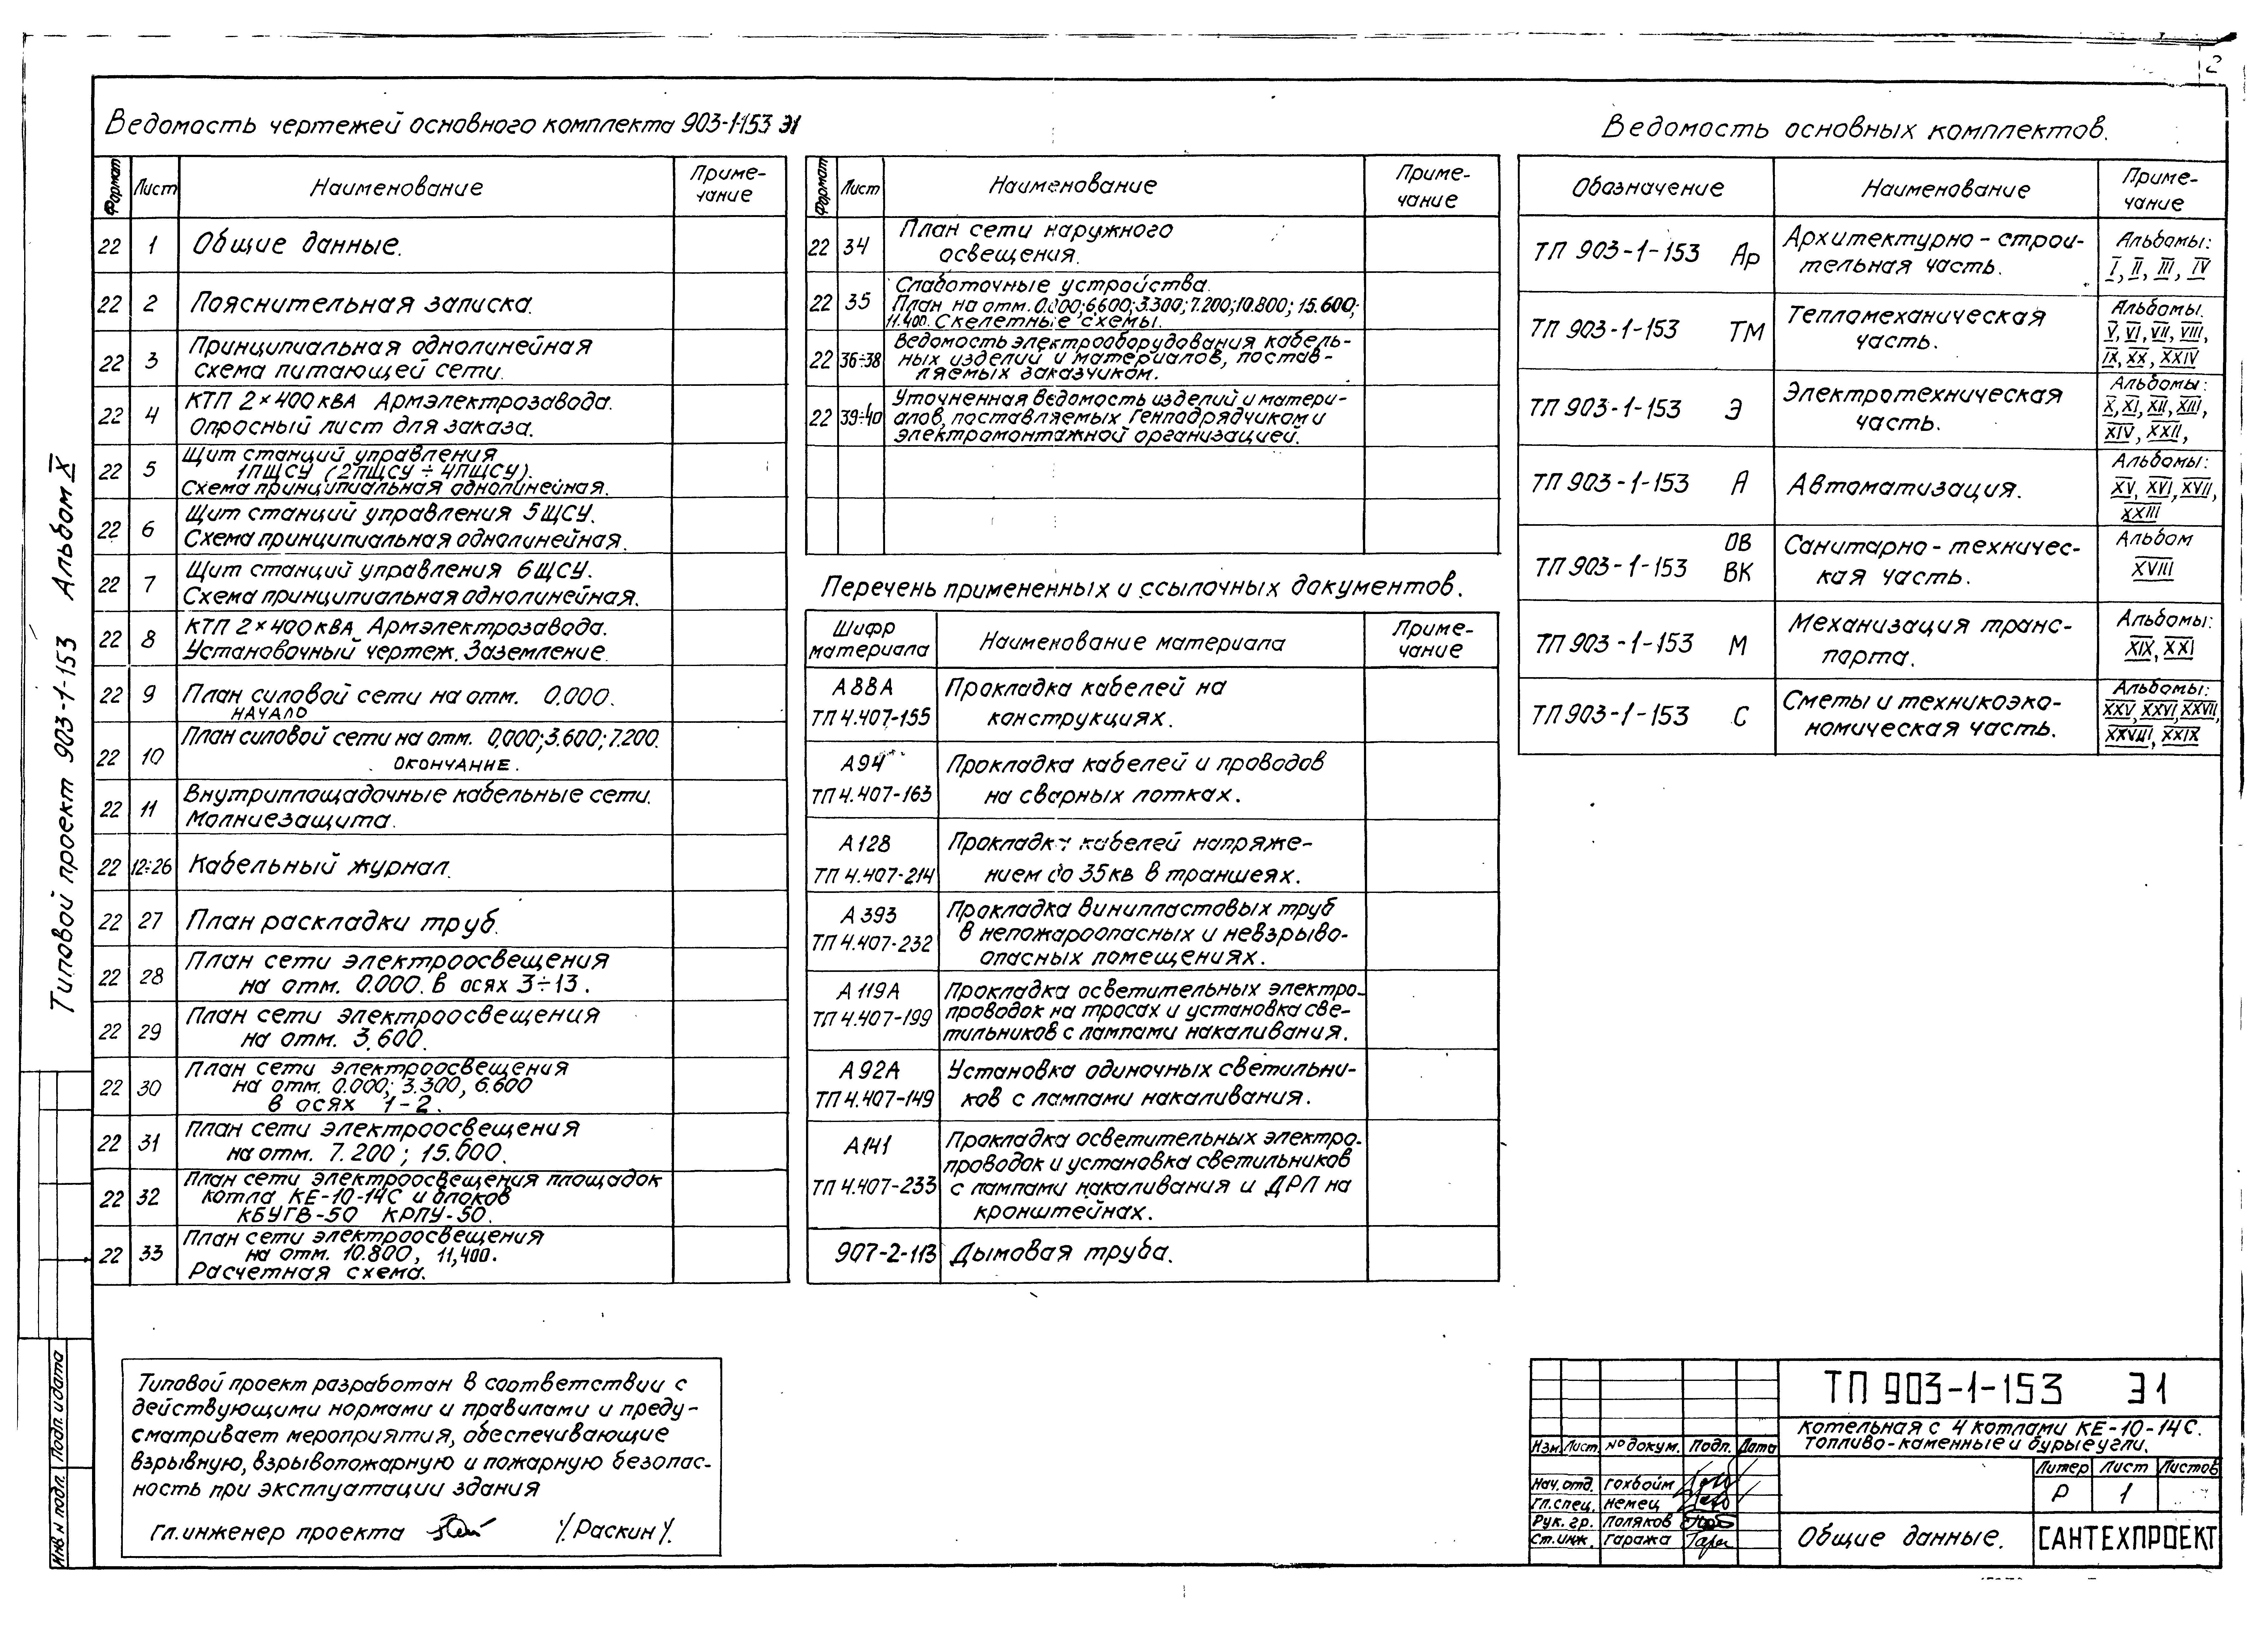 2
Типовой проект 903-1-153 Альбом X
Ведомость чертежей основного комплекта 903-1-153 Э1
Формат Лист Наименование Приме-
чание
22 1 Общие данные.
22 2 Пояснительная записка.
22 3 Принципиальная однолинейная
схема питающей сети.
22 4 КТП 2×400 кВА Армэлектрозавода.
Опросный лист для заказа.
22 5 Щит станций управления
1ПЩСУ (2ПЩСУ ÷ 4ПЩСУ).
Схема принципиальная однолинейная.
22 6 Щит станций управления 5ЩСУ.
Схема принципиальная однолинейная.
22 7 Щит станций управления 6ЩСУ.
Схема принципиальная однолинейная.
22 8 КТП 2×400 кВА Армэлектрозавода.
Установочный чертеж. Заземление.
22 9 План силовой сети на отм. 0.000.
НАЧАЛО
22 10 План силовой сети на отм. 0.000; 3.600; 7.200.
ОКОНЧАНИЕ.
22 11 Внутриплощадочные кабельные сети.
Молниезащита.
22 12÷26 Кабельный журнал.
22 27 План раскладки труб.
22 28 План сети электроосвещения
на отм. 0.000. в осях 3÷13.
22 29 План сети электроосвещения
на отм. 3.600.
22 30 План сети электроосвещения
на отм. 0.000; 3.300, 6.600
в осях 1-2.
22 31 План сети электроосвещения
на отм. 7.200; 15.000.
22 32 План сети электроосвещения площадок
котла КЕ-10-14С и блоков
КБУГВ-50 КРПУ-50.
22 33 План сети электроосвещения
на отм. 10.800, 11,400.
Расчетная схема.
Формат Лист Наименование Приме-
чание
22 34 План сети наружного
освещения.
22 35 Слаботочные устройства.
План на отм. 0.000; 6.600; 3.300; 7.200; 10.800; 15.600;
11.400. Скелетные схемы.
22 36÷38 Ведомость электрооборудования кабель-
ных изделий и материалов, постав-
ляемых заказчиком.
22 39÷40 Уточненная ведомость изделий и матери-
алов, поставляемых Генподрядчиком и
электромонтажной организацией.
Перечень примененных и ссылочных документов.
Шифр
материала Наименование материала Приме-
чание
А88А Прокладка кабелей на
ТП 4.407-155 конструкциях.
А94 Прокладка кабелей и проводов
ТП 4.407-163 на сварных лотках.
А128 Прокладка кабелей напряже-
ТП 4.407-214 нием до 35кв в траншеях.
А393 Прокладка винипластовых труб
ТП 4.407-232 в непожароопасных и невзрыво-
опасных помещениях.
А119А Прокладка осветительных электро-
ТП 4.407-199 проводок на тросах и установка све-
тильников с лампами накаливания.
А92А Установка одиночных светильни-
ТП 4.407-149 ков с лампами накаливания.
А141 Прокладка осветительных электро-
проводок и установка светильников
ТП 4.407-233 с лампами накаливания и ДРЛ на
кронштейнах.
907-2-113 Дымовая труба.
Ведомость основных комплектов.
Обозначение Наименование Приме-
чание
ТП 903-1-153 Ар Архитектурно-строи-
тельная часть. Альбомы:
I, II, III, IV
ТП 903-1-153 ТМ Тепломеханическая
часть. Альбомы.
V, VI, VII, VIII,
IX, XX, XXIV
ТП 903-1-153 Э Электротехническая
часть. Альбомы:
X, XI, XII, XIII,
XIV, XXII,
ТП 903-1-153 А Автоматизация. Альбомы:
XV, XVI, XVII,
XXIII
ТП 903-1-153 ОВ
ВК Санитарно-техничес-
кая часть. Альбом
XVIII
ТП 903-1-153 М Механизация транс-
порта. Альбомы:
XIX, XXI
ТП 903-1-153 С Сметы и техникоэко-
номическая часть. Альбомы:
XXV, XXVI, XXVII,
XXVIII, XXIX
Типовой проект разработан в соответствии с
действующими нормами и правилами и преду-
сматривает мероприятия, обеспечивающие
взрывную, взрывопожарную и пожарную безопас-
ность при эксплуатации здания
Гл. инженер проекта /Раскин/.
Инв N подл. Подп. и дата
ТП 903-1-153 Э1
Котельная с 4 котлами КЕ-10-14С.
Топливо-каменные и бурые угли.
Изм. Лист. № докум. Подп. Дата
Нач. отд. Гохбойм
Гл. спец. Немец
Рук. гр. Поляков
Ст. инж. Гаража
Литер Лист Листов
Р 1
Общие данные.
САНТЕХПРОЕКТ